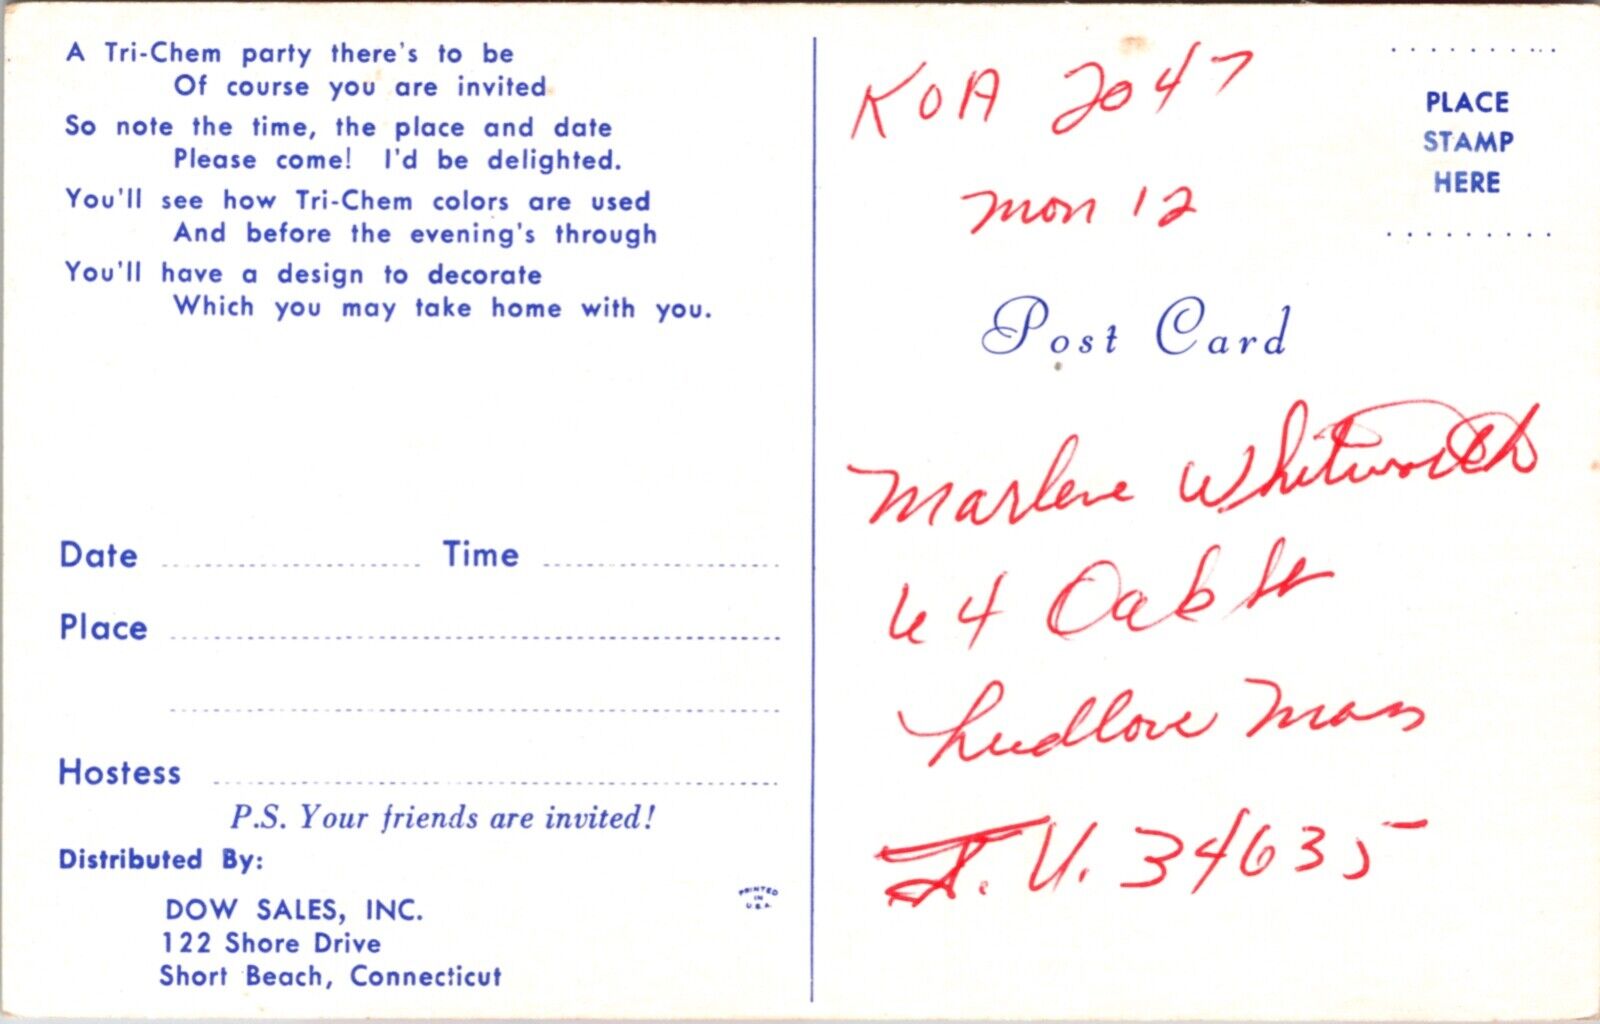 A Tri-Chem party there's to be
Of course you are invited
So note the time, the place and date
Please come! I'd be delighted.
You'll see how Tri-Chem colors are used
And before the evening's through
You'll have a design to decorate
Which you may take home with you.
Date Time
Place
Hostess
P.S. Your friends are invited!
Distributed By:
DOW SALES, INC.
122 Shore Drive
Short Beach, Connecticut
PRINTED
IN
U.S.A.
KOA 2047
Mon 12
PLACE
STAMP
HERE
Post Card
Marlene Whitworth
64 Oak St
Ludlow Mass
V. 34635